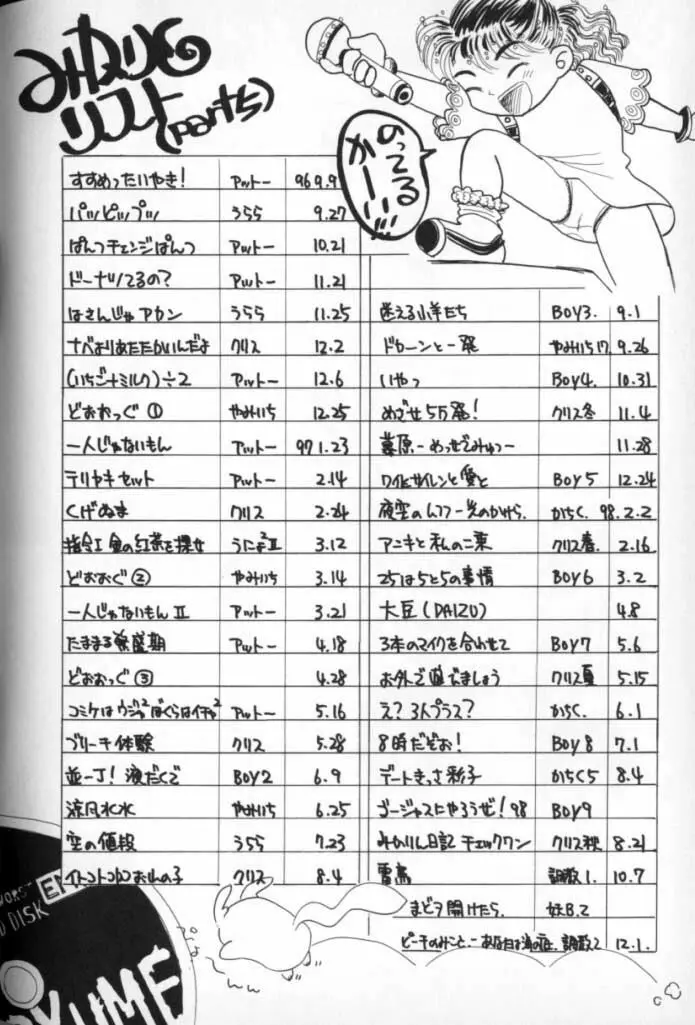 みねりの
リスト(part5)
のってる
かーい!!!
すすめったいやき! アットー 96 9.9
パッピップッ うらら 9.27
ぱんつチェンジぱんつ アットー 10.21
ドーナッてるの? アットー 11.21
はさんじゃアカン うらら 11.25
なべよりあたたかいんだよ クリス 12.2
(いちご+ミルク)÷2 アットー 12.6
どおおっぐ① やみいち 12.25
一人じゃないもん アットー 97 1.23
テリヤキセット アットー 2.14
くげぬま クリス 2.24
指令I 金の紅茶を探せ 3.12
どおおぐ② やみいち 3.14
一人じゃないもんII アットー 3.21
たままる繁盛期 アットー 4.18
どおおっぐ③ 4.28
アットー 5.16
ブリーチ体験 クリス 5.28
並一丁! 液だくで BOY2 6.9
涼風水水 やみいち 6.25
空の値段 うらら 7.23
クリス 8.4
迷える小羊たち BOY3. 9.1
ドカーンと一発 やみいち17 9.26
いやっ BOY4. 10.31
めざせ5万発! クリス冬 11.4
11.28
ワイルドサイレンと愛と BOY5 12.24
かちく. 98.2.2
アニキと私の二乗 クリス春. 2.16
25は5と5の事情 BOY6 3.2
大豆(DAIZU) 4.8
3本のマイクを合わせて BOY7 5.6
お外で遊でましょう クリス夏 5.15
え?3人プラス? かちく. 6.1
8時だぞお! BOY8 7.1
デートきっさ彩子 かちく5 8.4
ゴージャスにやろうぜ! 98 BOY9
みかりん日記 チェックワン クリス秋 8.21
雷鳥 調教1. 10.7
まどヲ開けたら. 妖B.2
調教2 12.1.
WORST
DISK
YUME